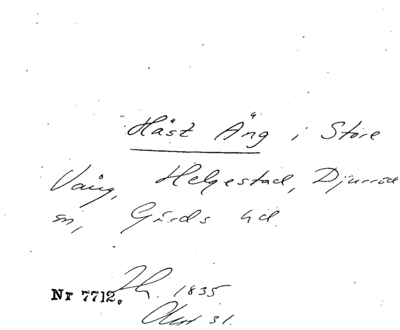 Häst Äng i Store
Vång, Helgestad, Djurröd
sn, Gärds hd.
Nr 7712. 1835
31.